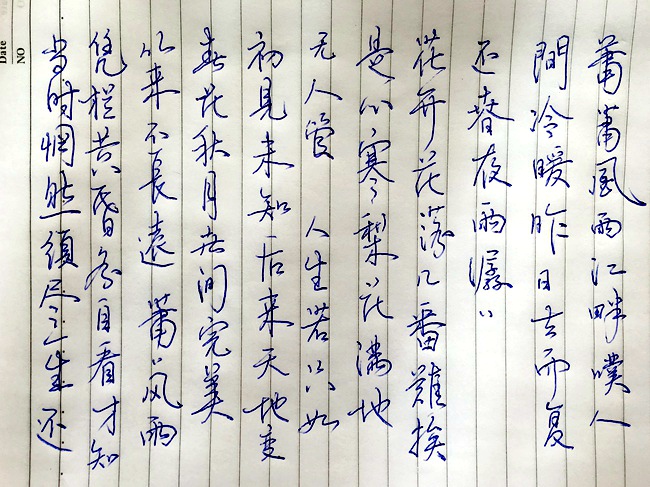 Date
NO
蕭蕭風雨江畔嘆人
間冷暖昨日去而复
还春夜雨潺〃
花开花落几番難挨
是心寒〃梨花满地
无人管 人生若只如
初見未知后来天地变
春花秋月世间完美
从来不長遠 萧〃风雨
凭栏共昏各自看才知
当时惘然須尽三生还